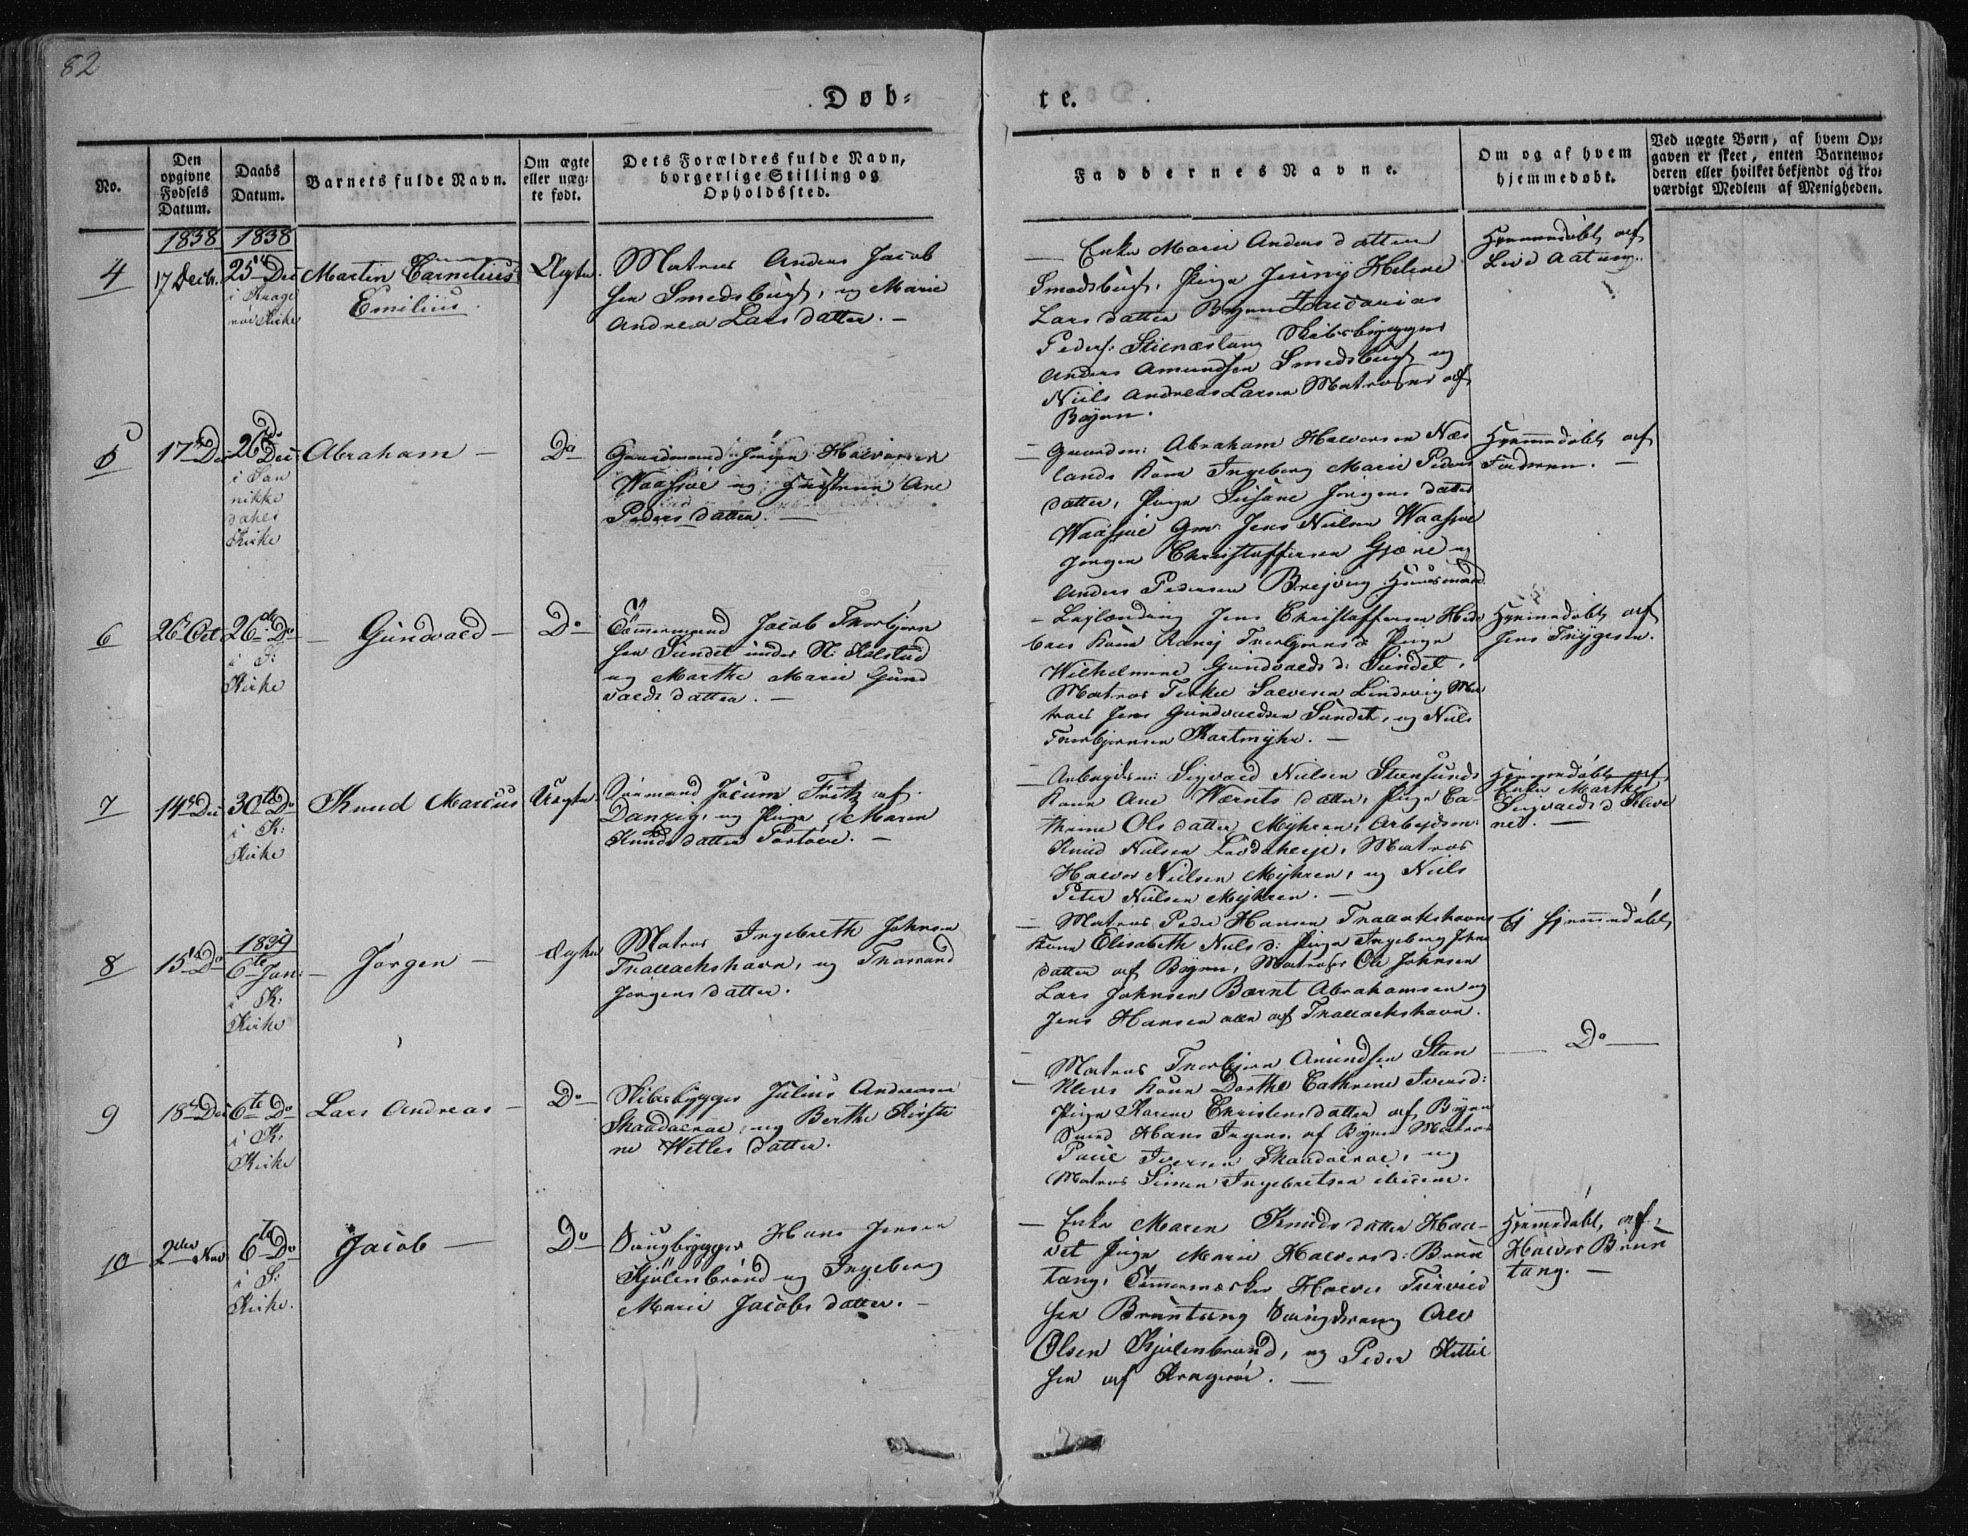 82
Døb-
te.
No.
Den
opgivne
Fødsels
Datum.
Daabs
Datum.
Barnets fulde Navn.
Om ægte
eller uæg-
te født.
Dets Forældres fulde Navn,
borgerlige Stilling og
Opholdssted.
Faddernes Navne.
Om og af hvem
hjemmedøbt.
Ved uægte Børn, af hvem Op-
gaven er skeet, enten Barnemo-
deren eller hvilket bekjendt og tro-
værdigt Medlem af Menigheden.
1838
1838
4
17 Decbr.
25 Dec
i Krage
røe Kirke
Martin Carnelius
Emilius.
Ægte.
Matros Anders Jacob
sen Smedsbugt, og Marie
Andrea Larsdatter. -
Enke Marie Andersdatter
Smedsbugt, Pige Jenny Helene
Larsdatter Byen Zacarias
Peders: Stilnæstang Skibsbygger
Anders Amundsen Smedsbugt og
Niels Andreas Larsen Matroser af
Byen.
Hjemmedøbt af
5
17 Dec
26 Dec
i San
nikke
dahls
Kirke
Abraham -
Do
Gaardmand Jørgen Halvorsen
Waasjøe og Hustrue Ane
Pedersdatter. -
- Gaardm: Abraham Halvorsen Næs
lands Kone Ingeborg Marie Peders
datter, Pige Susane Jørgensdatter
Waasjøe Gm: Jens Nielsen Waasjøe
Jørgen Christoffersen Gjerne og
Anders Pedersen Brejvig Huusmand
Hjemmedøbt af
Faderen. -
6
26 Oct
26de Do
i S:
Kirke
- Gundvald -
Do
Tømmermand Jacob Thorbjørn
sen Sundet under N: Kalstad
og Marthe Marie Gund
valdsdatter. -
- Leglænding Jens Christoffersen
Kone Thorbjørnsd Pige
Wilhelmine Gundvaldsd: Sundet,
Matros Terkel Salvesen Lindvig Ma
tros Jens Gundvaldsen Sundet, og Niels
Thorbjørnsen Kartmyhr. -
Hjemmedøbt af
Jens Thrygesen.
7
14 Dec
30te Do
i K:
Kirke
Knud Marcus
Uægte.
Sømand Jocum Fritz af
Danzig, og Pige Maren
Knudsdatter Portøer. -
- Arbeydsm: Sigvald Nielsen Steensunds
Kone Ane Wærntsdatter, Pige Ca-
thrine Olsdatter Myhren, Arbejdsm:
Knud Nielsen Matros
Halvor Nielsen Myhren, og Niels
Peter Nielsen Myhren. -
Hjemmedøbt af
Enke Marthe
Sigvaldsd Kleve
net. -
8
15 Do
1839
6te Jan:
i K:
Kirke
- Jørgen -
Ægte
Matros Ingebreth Johnsen
Thallackshavn, og Thorand
Jørgensdatter.
- Matros Peder Hansen Thallackshavns
Kone Elisabeth Nielsd: Pige Ingeborg Johns
datter af Byen, Matros Ole Johnsen
Lars Johnsen Bærnt Abrahamsen og
Jens Hansen alle af Thallackshavn.
Ej hjemmedøbt
9
18 Dec
6te Do
i K:
Kirke
Lars Andreas -
Do
Skibsbygger Julius Andersen
Skaadalrae, og Berthe Kirsti
ne Wetlesdatter.
- Matros Thorbjørn Amundsen Stan
klevs Kone Dorthe Cathrine Iversd:
Pige Karine Christensdatter af Byen
Smed Hans Ingens. af Byen Matros
Poul Iversen Skaadalrae, og
Matros Simen Ingebretsen ibidem.
Do
10
2den Nov
6te Do
i S:
Kirke.
Jacob -
Do
Saugbygger Hans Jensen
Kjølenbrønd og Ingeborg
Marie Jacobsdatter. -
- Enke Maren Knudsdatter Haa-
vet Pige Marie Halvorsd: Bruun
tang, Tømmermæster Halvor
sen Bruuntang Saugdreng Ole
Olsen Kjølenbrønd, og Peder Kittil
sen af Kragerøe. -
Hjemmedøbt af
Halvor Bruun
tang. -